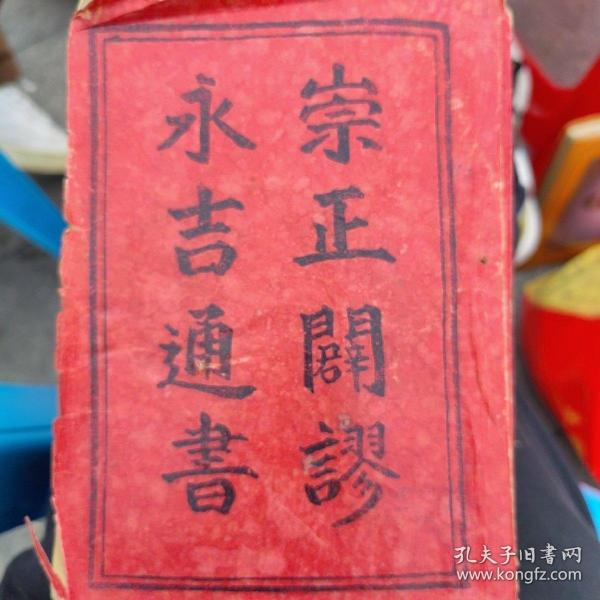 崇正闢謬
永吉通書
孔夫子旧書网
www.kongfz.com